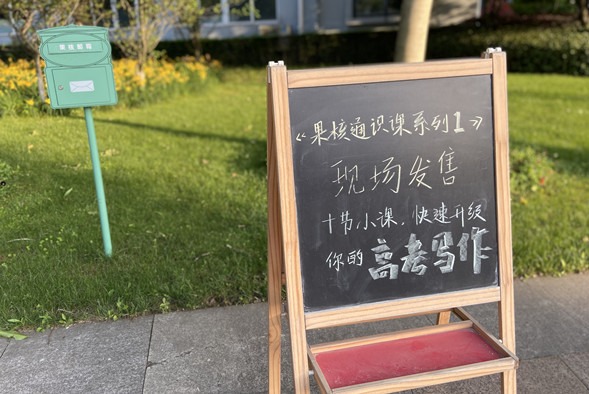 果核邮局
《果核通识课系列1》
现场发售
十节小课，快速升级
你的高考写作